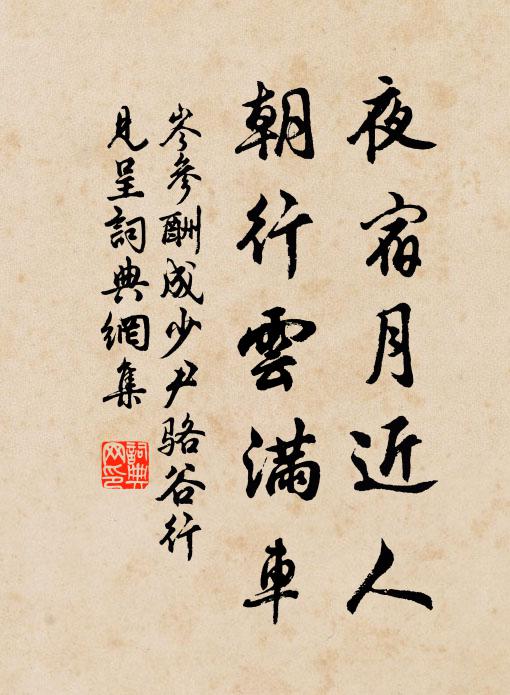 夜宿月近人
朝行雲滿車
岑參酬成少尹駱谷行
見呈詞典網集
詞典网印